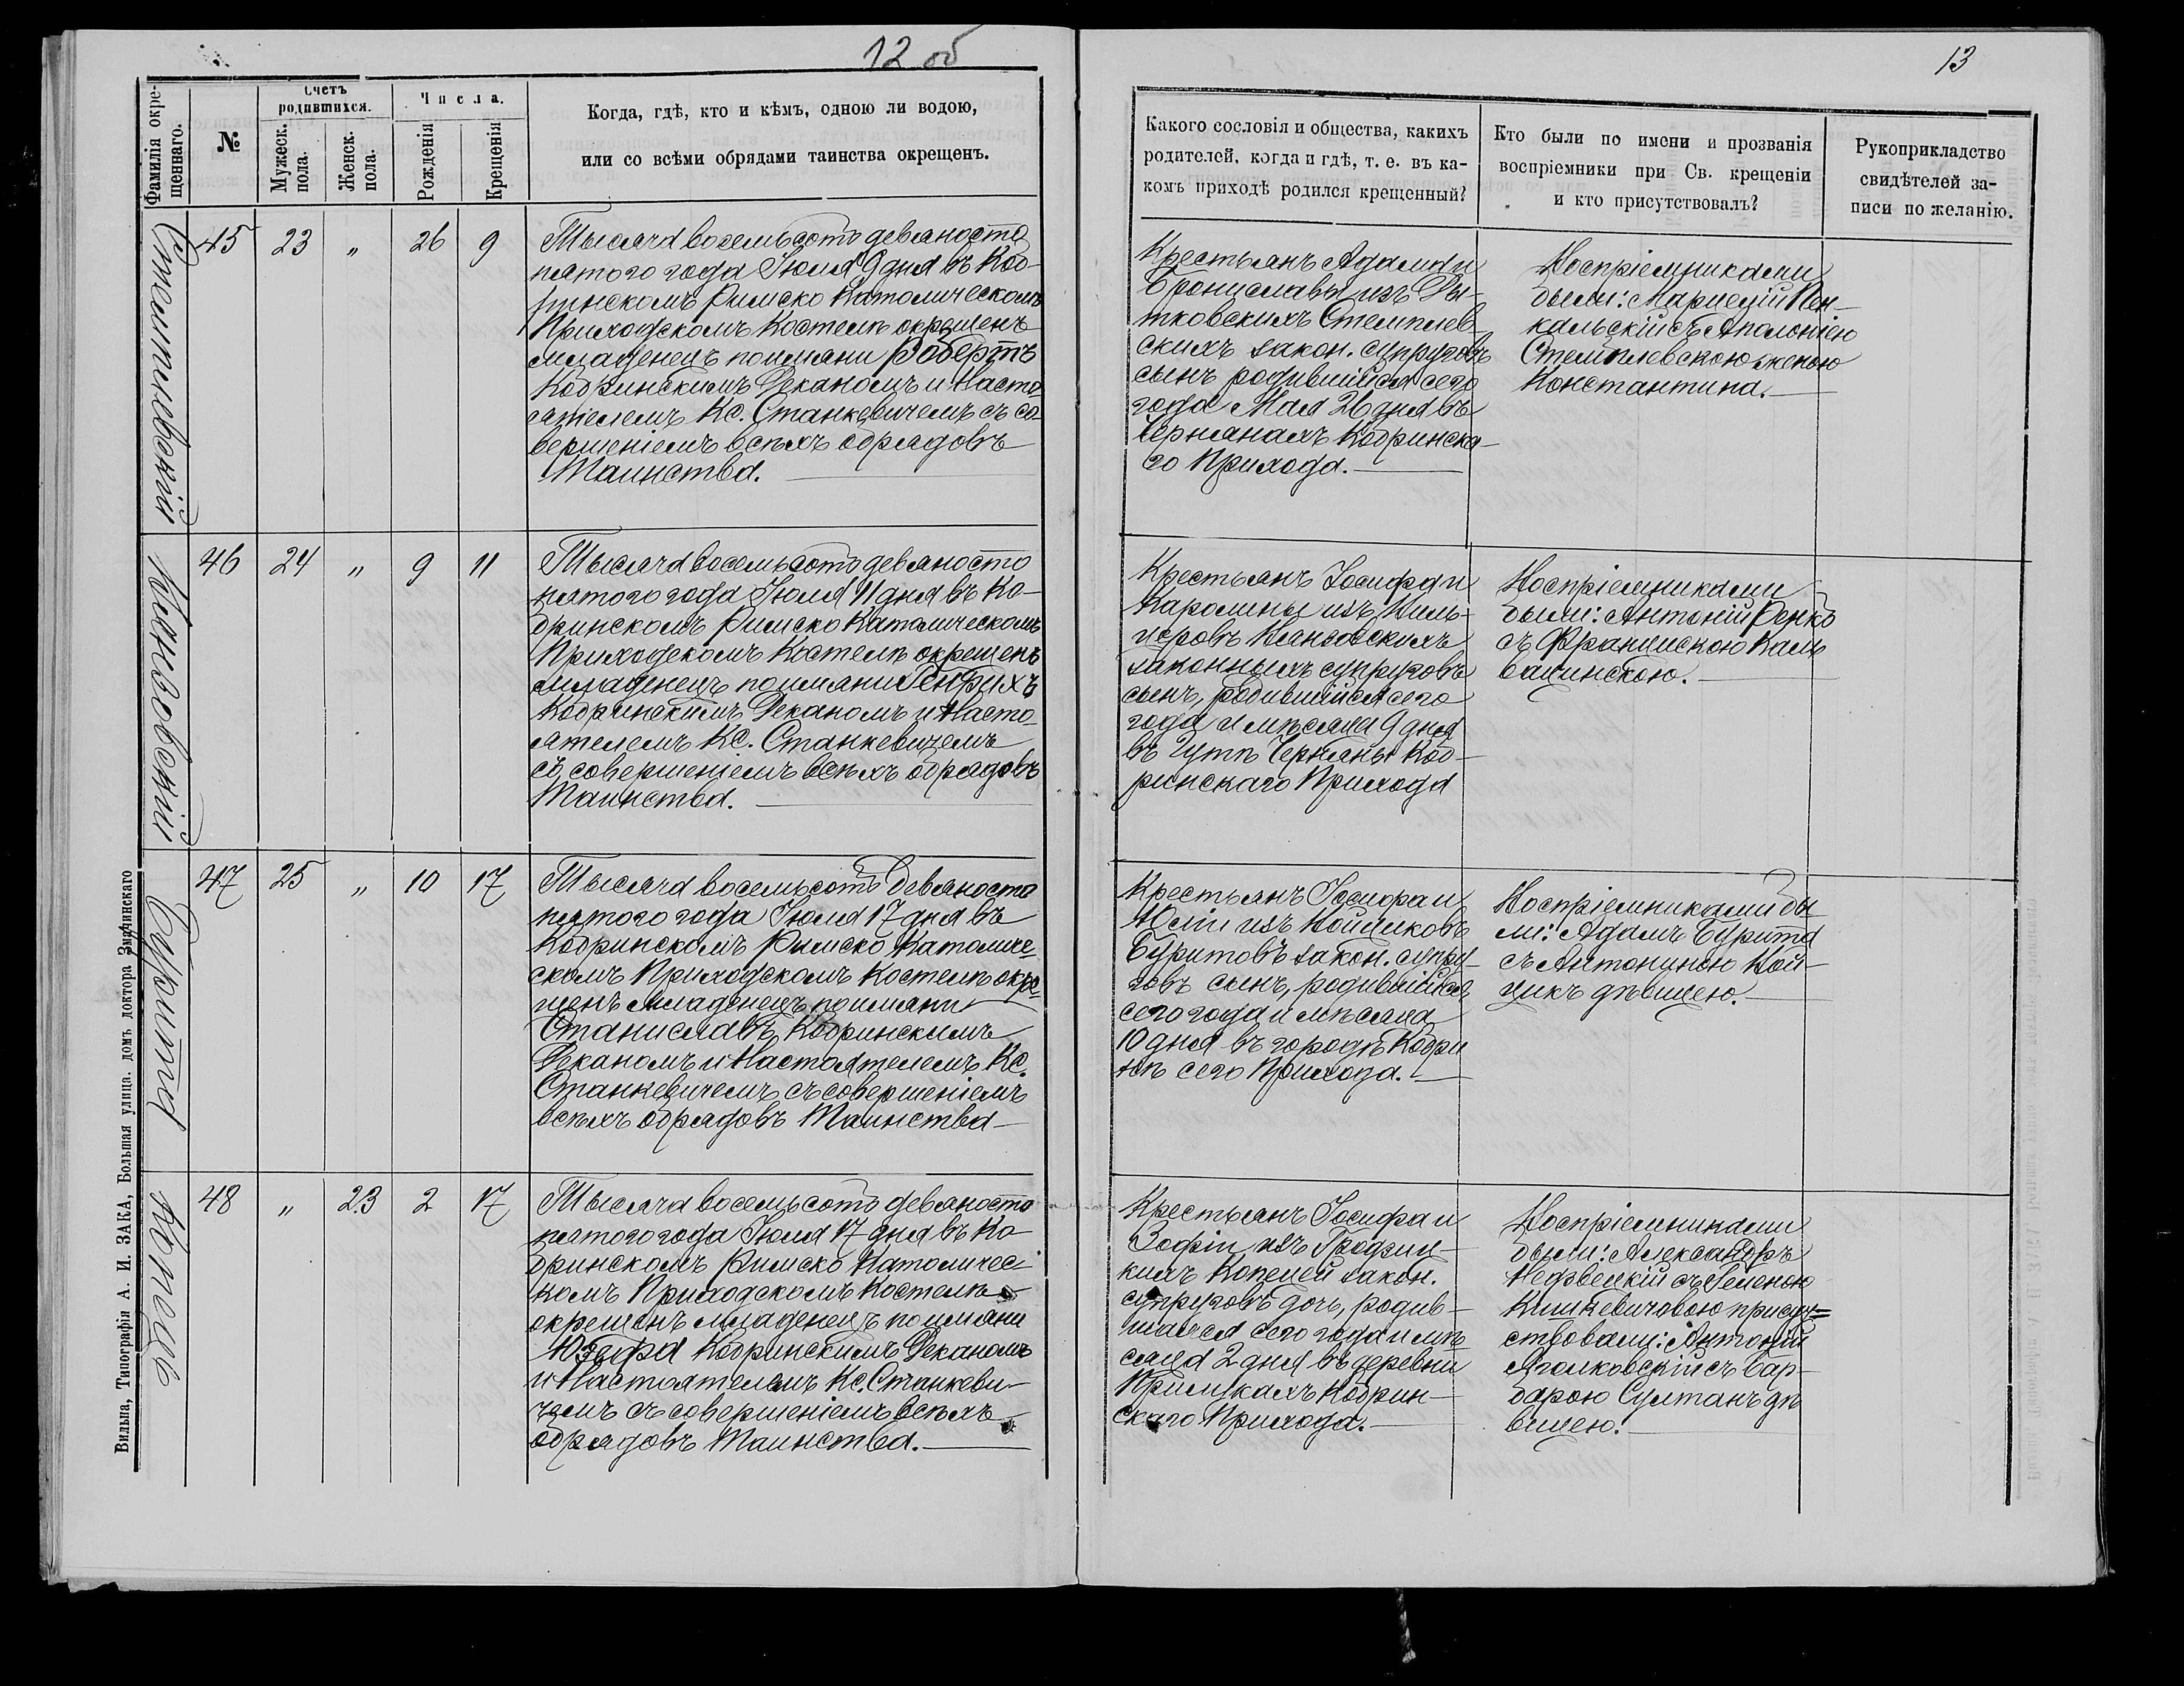 12 об
13
Фамилія окре-
щеннаго.
№
Счетъ
родившихся.
Мужеск.
пола.
Женск.
пола.
Числа.
Рожденія
Крещенія
Когда, гдѣ, кто и кѣмъ, одною ли водою,
или со всѣми обрядами таинства окрещенъ.
Какого сословія и общества, какихъ
родителей, когда и гдѣ, т. е. въ ка-
комъ приходѣ родился крещенный?
Кто были по имени и прозванія
воспріемники при Св. крещеніи
и кто присутствовалъ?
Рукоприкладство
свидѣтелей за-
писи по желанію.
Стемплевскій
45 23 „ 26 9
Тысяча восемьсотъ девяносто
пятого года Іюля 9 дня въ Коб-
ринскомъ Римско Католическомъ
Приходскомъ Костелѣ окрещенъ
младенецъ поимяни Робертъ
Кобринскимъ Деканомъ и Насто-
ятелемъ Кс. Станкевичемъ съ со-
вершеніемъ всѣхъ обрядовъ
Таинства.
Крестьянъ Адама и
Брониславы изъ
Стемплев-
скихъ закон. супруговъ
сынъ родившійся сего
года Мая 26 дня въ
Чернянахъ Кобринска-
го Прихода.
Воспріемниками
были:
съ Аполоніею
Стемплевскою женою
Константина.
Кляновскій
46 24 „ 9 11
Тысяча восемьсотъ девяносто
пятого года Іюля 11 дня въ Ко-
бринскомъ Римско Католическомъ
Приходскомъ Костелѣ окрещенъ
младенецъ поимяни Генрихъ
Кобринскимъ Деканомъ и Насто-
ятелемъ Кс. Станкевичемъ
съ совершеніемъ всѣхъ обрядовъ
Таинства.
Крестьянъ Іосифа и
Каролины изъ
Кляновскихъ
законныхъ супруговъ
сынъ, родившійся сего
года и мѣсяца 9 дня
въ Черняны Коб-
ринскаго Прихода
Воспріемниками
были: Антоній Ренко
съ Францискою
Бурита
47 25 „ 10 17
Тысяча восемьсотъ девяносто
пятого года Іюля 17 дня въ
Кобринскомъ Римско Католиче-
скомъ Приходскомъ Костелѣ окре-
щенъ младенецъ поимяни
Станиславъ, Кобринскимъ
Деканомъ и Настоятелемъ Кс.
Станкевичемъ съ совершеніемъ
всѣхъ обрядовъ Таинства
Крестьянъ Іосифа и
Юліи изъ Койциковъ
Буритовъ закон. супру-
говъ сынъ, родившійся
сего года и мѣсяца
10 дня въ городѣ Кобри
нѣ сего Прихода.
Воспріемниками бы
ли: Адамъ Бурита
съ Антониною Кой-
цикъ дѣвицею.
Копецъ
48 „ 23 2 17
Тысяча восемьсотъ девяносто
пятого года Іюля 17 дня въ Ко-
бринскомъ Римско Католичес-
комъ Приходскомъ Костелѣ
окрещенъ младенецъ поимяни
Юзефа Кобринскимъ Деканомъ
и Настоятелемъ Кс. Станкеви-
чемъ съ совершеніемъ всѣхъ
обрядовъ Таинства.
Крестьянъ Іосифа и
Зофіи изъ Гродзиц-
кихъ Копецей закон.
супруговъ дочь, родив-
шаяся сего года и мѣ
сяца 2 дня въ деревни
Прилукахъ Кобрин-
скаго Прихода.
Воспріемниками
были: Александръ
Недзвецкій съ Геленою
присут-
ствовали: Антоній
съ Бар-
барою Султанъ дѣ
вицею.
Вильна, Типографія А. И. ЗАКА, Большая улица. домъ доктора Значинскаго